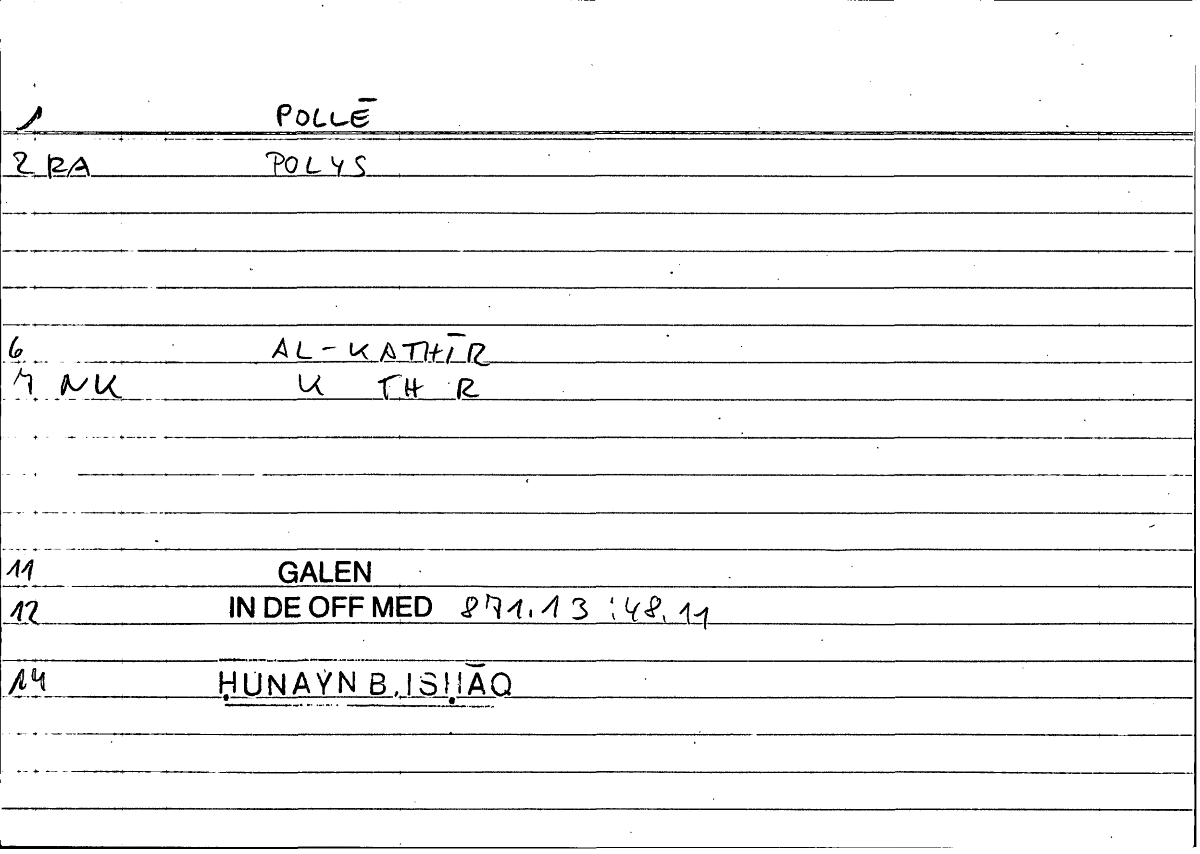 1 POLLĒ
2 RA POLYS
6 AL-KATHĪR
7 NK K TH R
11 GALEN
12 IN DE OFF MED 871.13:48.11
14 ḤUNAYN B. ISḤĀQ